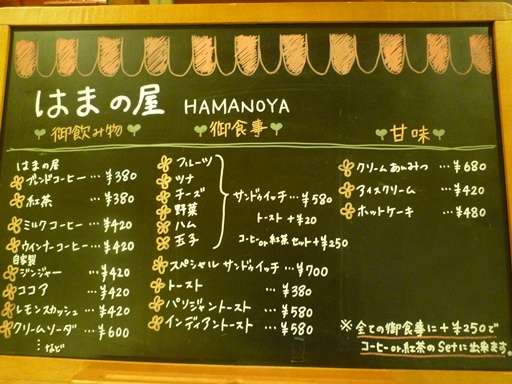 はまの屋 HAMANOYA
御飲み物
はまの屋
ブレンドコーヒー…¥380
紅茶 …¥380
ミルクコーヒー…¥420
ウインナーコーヒー…¥420
自家製
ジンジャー …¥420
ココア …¥420
レモンスカッシュ…¥420
クリームソーダ …¥600
…など
御食事
フルーツ
ツナ
チーズ
野菜
ハム
玉子
サンドゥイッチ…¥580
トースト +¥20
コーヒーor紅茶 セット+¥250
スペシャル サンドゥイッチ…¥700
トースト …¥380
パリジャントースト …¥580
インディアントースト …¥580
甘味
クリームあんみつ …¥680
アイスクリーム …¥420
ホットケーキ …¥480
※全ての御食事に+¥250で
コーヒーor紅茶のSetに出来ます。